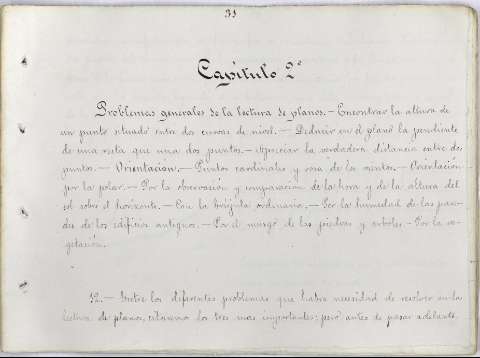 31
Capítulo 2º
Problemas generales de la lectura de planos.— Encontrar la altura de
un punto situado entre dos curvas de nivel.— Deducir en el plano la pendiente
de una recta que una dos puntos.— Apreciar la verdadera distancia entre dos
puntos.— Orientación.— Puntos cardinales y rosa de los vientos.— Orientación
por la polar.— Por la observación y comparación de la hora y de la altura del
sol sobre el horizonte.— Con la brújula ordinaria.— Por la humedad de las pare-
des de los edificios antiguos.— Por el musgo de las piedras y arboles.— Por la ve-
getación.
12.— Entre los diferentes problemas que habrá necesidad de resolver en la
lectura de planos, citaremos los tres mas importantes; pero antes de pasar adelante,